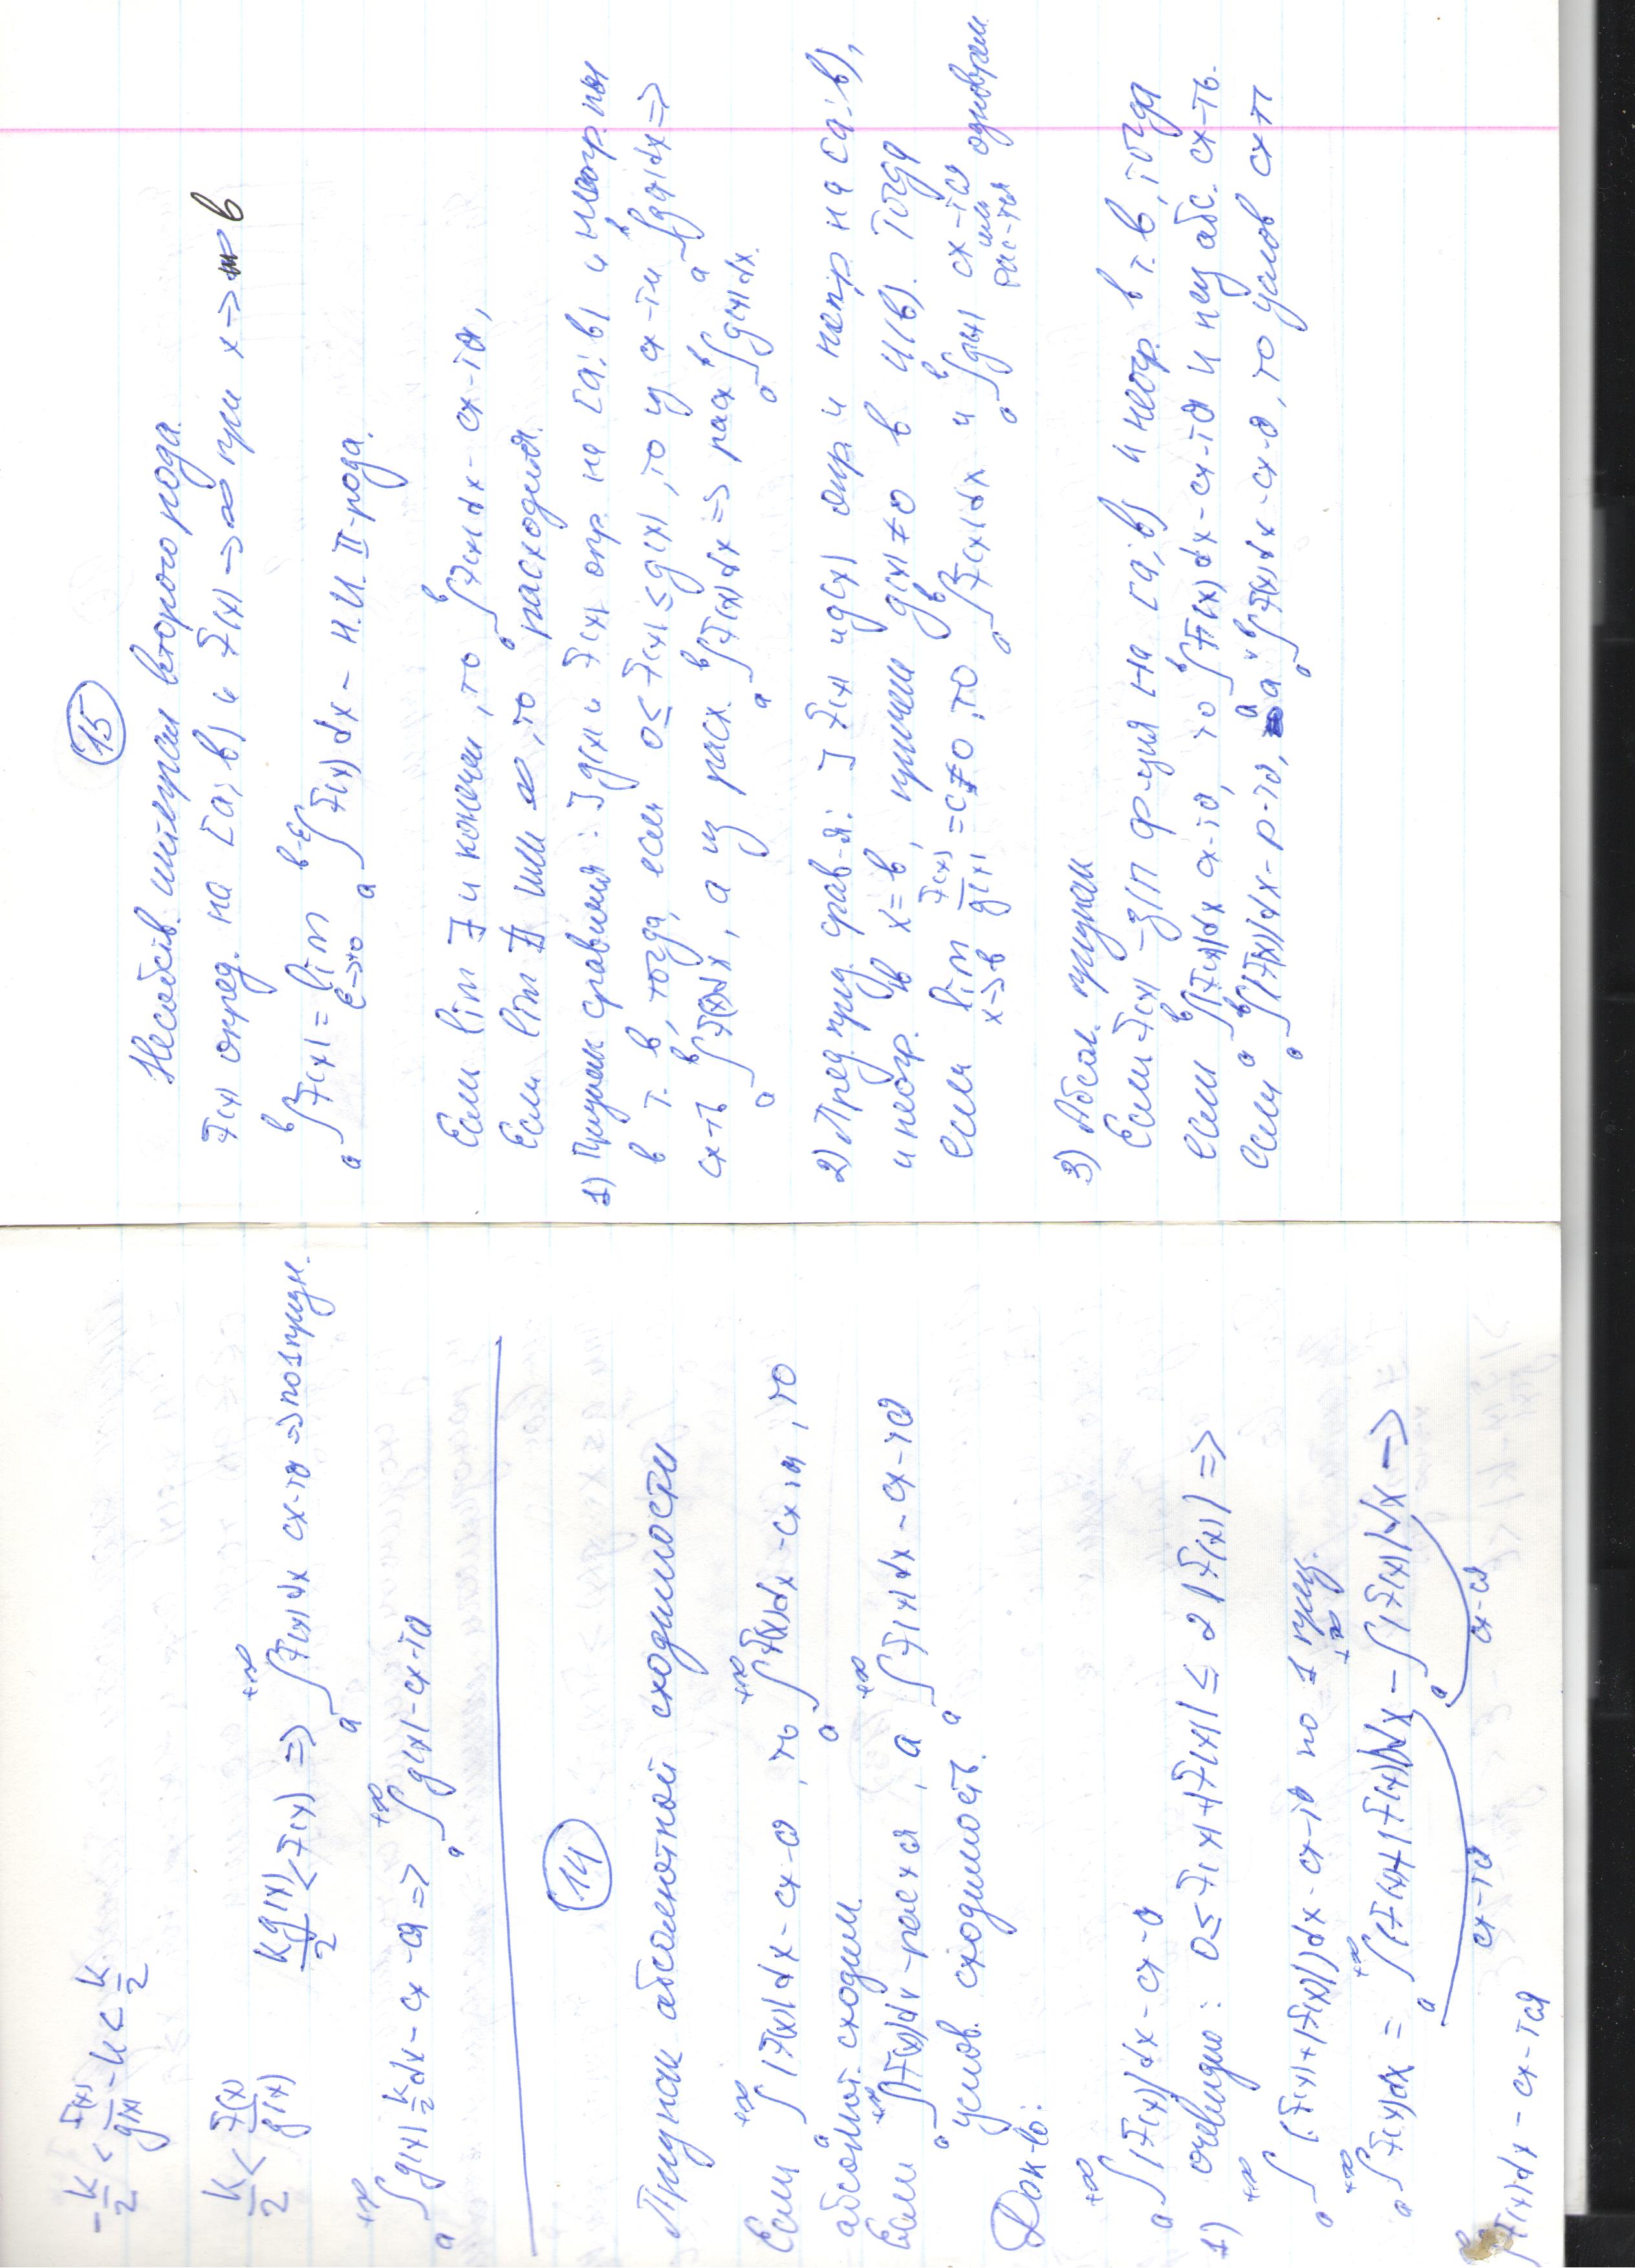 -k/2 < f(x)/g(x) - k < k/2
k/2 < f(x)/g(x)    kg(x)/2 < f(x) => ∫ₐ^{+∞} f(x)dx сх-тся => по 1 призн.
∫ₐ^{+∞} g(x) k/2 dx - сх-ся => ∫ₐ^{+∞} g(x) - сх-тся
14
Признак абсолютной сходимости
Если ∫ₐ^{+∞} |f(x)|dx - сх-ся, то ∫ₐ^{+∞} f(x)dx - сх-тся, то
абсолют. сходим.
Если ∫ₐ^{+∞} |f(x)|dx - расх ся, а ∫ₐ^{+∞} f(x)dx - сх-тся
условн. сходимость.
Док-во:
∫ₐ^{+∞} |f(x)|dx - сх-ся
1) очевидно: 0 ≤ f(x) + |f(x)| ≤ 2|f(x)| =>
∫ₐ^{+∞} (f(x) + |f(x)|)dx - сх-тся по 1 призн.
∫ₐ^{+∞} f(x)dx = ∫ₐ^{+∞} (f(x) + |f(x)|)dx - ∫ₐ^{+∞} |f(x)|dx =>
сх-тся сх-ся
∫f(x)dx - сх-тся
15
Несобств. интеграл второго рода
f(x) опред. на [a; в) и f(x) -> ∞ при x -> в
∫ₐ^в f(x) = lim ε->+0 ∫ₐ^{в-ε} f(x)dx - Н.И. II-рода.
Если lim ∃ и конечен, то ∫ₐ^в f(x)dx - сх-тся,
Если lim ∄ или ∞, то расходится.
1) Признак сравнения: ] g(x) и f(x) опр. на [a; в) и неогр-ны
в т. в, тогда, если 0 ≤ f(x) ≤ g(x), то из сх-ти ∫ₐ^в g(x)dx =>
сх-ть ∫ₐ^в f(x)dx, а из расх. ∫ₐ^в f(x)dx => расх ∫ₐ^в g(x)dx.
2) Пред. приз. срав-я: ] f(x) и g(x) опр и непр. на [a; в),
и неогр. в x = в, причем g(x) ≠ 0 в U(в). Тогда
если lim x->в f(x)/g(x) = c ≠ 0, то ∫ₐ^в f(x)dx и ∫ₐ^в g(x) сх-тся или рас-тся одноврем
3) Абсол. признак
Если f(x) - зн/п ф-ция на [a; в) и неогр. в т. в, тогда
если ∫ₐ^в |f(x)|dx сх-тся, то ∫ₐ^в f(x)dx - сх-тся и наз абс. сх-ть.
Если ∫ₐ^в |f(x)|dx - р-тся, а ∫ₐ^в f(x)dx - сх-ся, то услов сх-ти